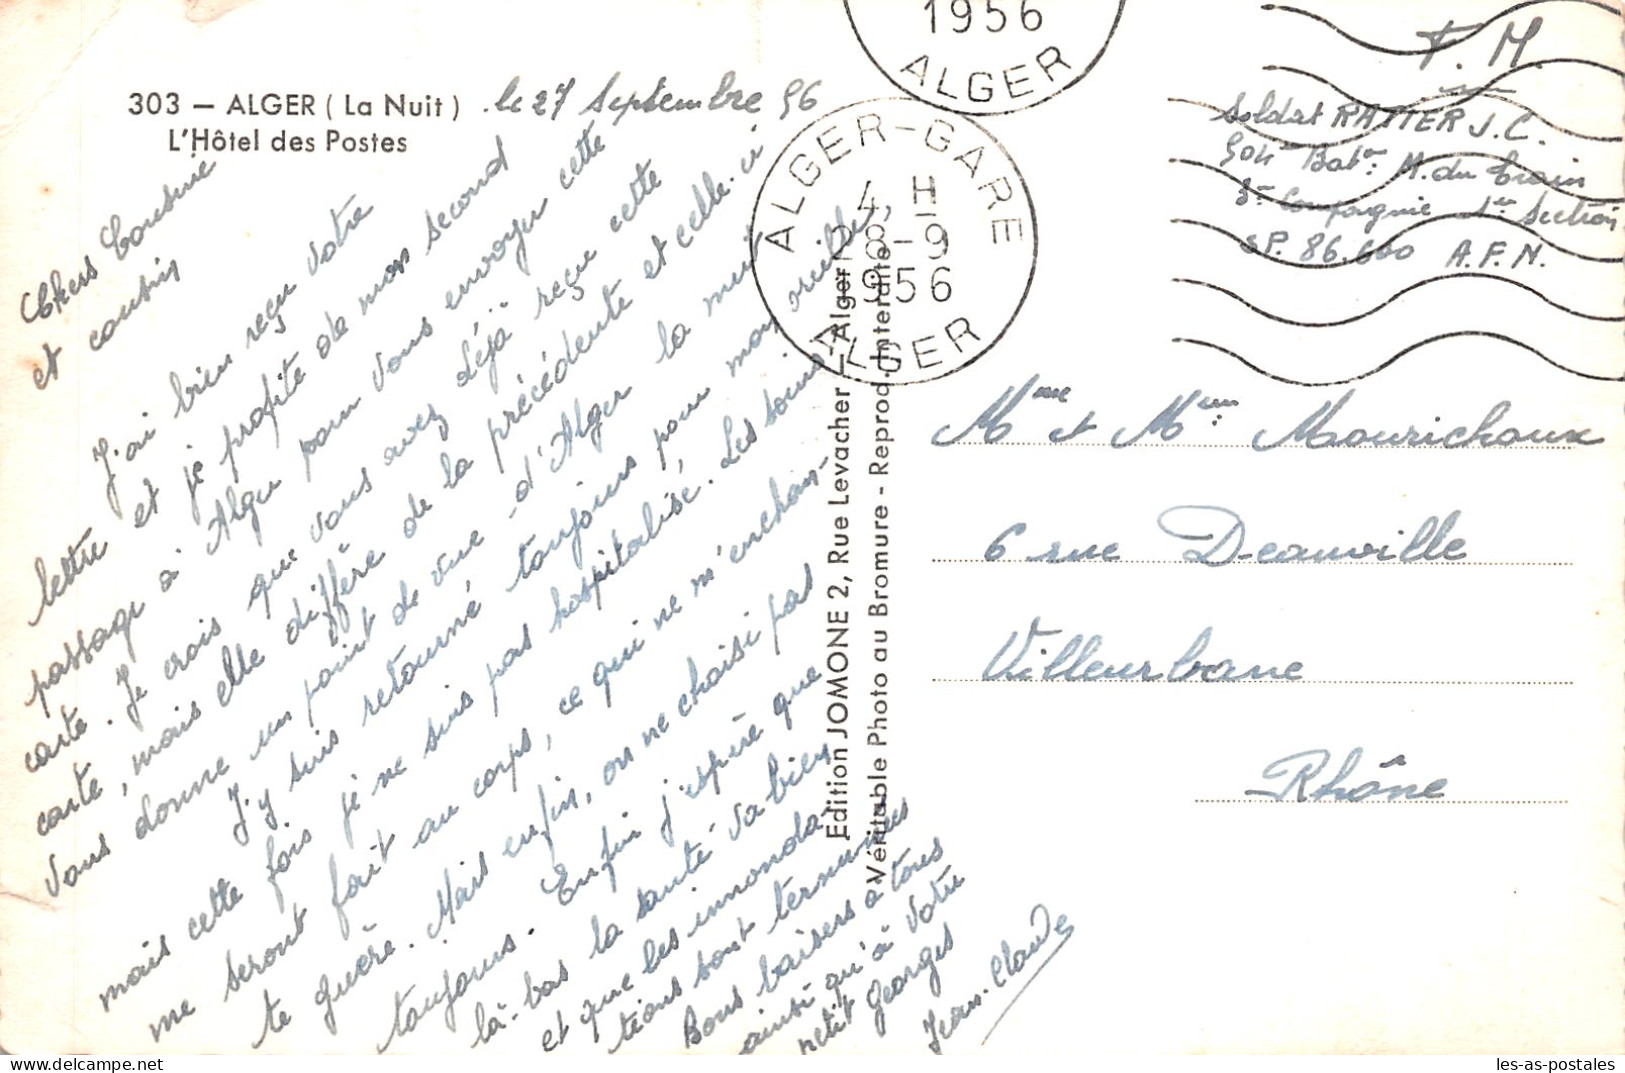 303 – ALGER ( La Nuit )
L'Hôtel des Postes
le 27 Septembre 56
Chers Cousine
et cousin
J'ai bien reçu votre
lettre et je profite de mon second
passage à Alger pour vous envoyer cette
carte. Je crois que vous avez déjà reçu cette
carte, mais elle diffère de la précédente et celle-ci
vous donne un point de vue d'Alger la nuit
J'y suis retourné toujours pour mon oreille,
mais cette fois je ne suis pas hospitalisé. Les soins
me seront fait au corps, ce qui ne m'enchan-
te guère. Mais enfin, on ne choisi pas
toujours. Enfin j'espère que
là-bas la santé va bien
et que les innonda
tions sont terminées
Bons baisers à tous
ainsi qu'à votre
petit Georges
Jean-Claude
Edition JOMONE 2, Rue Levacher – Alger
Véritable Photo au Bromure - Reprod. Interdite
1956
ALGER
ALGER-GARE
4 H
28-9
1956
ALGER
F. M.
Soldat RATIER J.C.
504 Bat. M. du Train
3 Compagnie 1 Section
SP. 86.600 A.F.N.
Mme et Mr Mourichoux
6 rue Deauville
Villeurbane
Rhône
les-as-postales